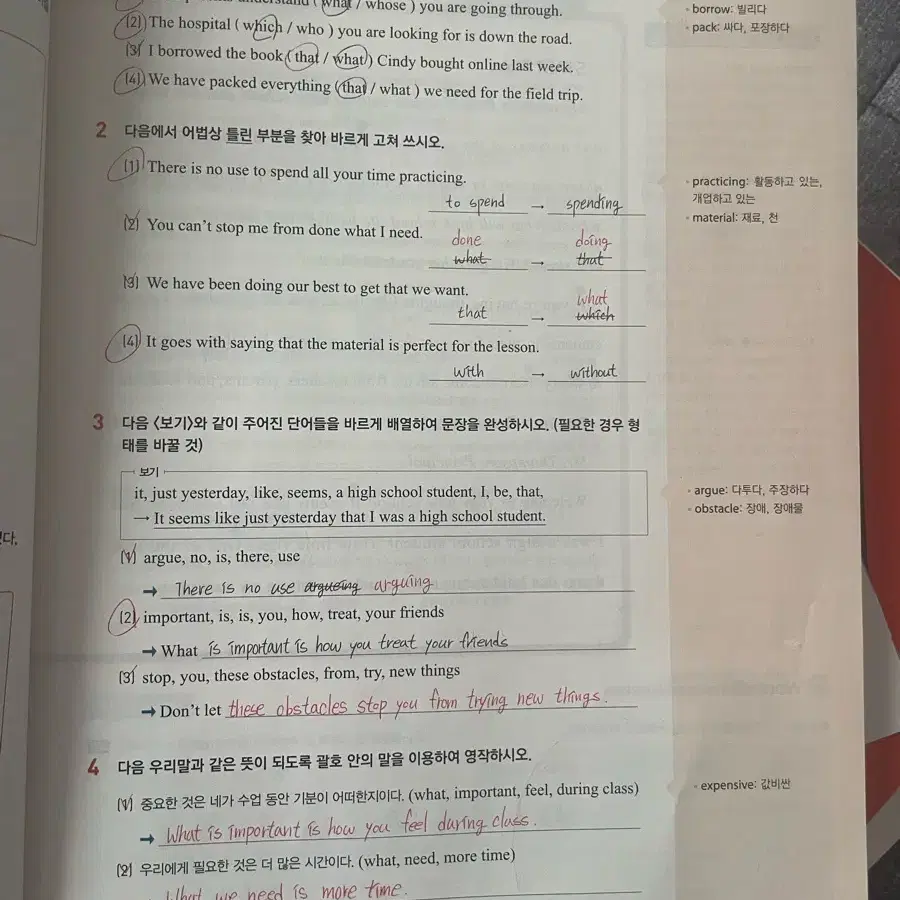 ( what / whose ) you are going through.
(2) The hospital ( which / who ) you are looking for is down the road.
(3) I borrowed the book ( that / what ) Cindy bought online last week.
(4) We have packed everything ( that / what ) we need for the field trip.
• borrow: 빌리다
• pack: 싸다, 포장하다
2 다음에서 어법상 틀린 부분을 찾아 바르게 고쳐 쓰시오.
(1) There is no use to spend all your time practicing.
to spend → spending
(2) You can't stop me from done what I need.
done doing
what → that
(3) We have been doing our best to get that we want.
what
that → which
(4) It goes with saying that the material is perfect for the lesson.
with → without
• practicing: 활동하고 있는,
개업하고 있는
• material: 재료, 천
3 다음 〈보기〉와 같이 주어진 단어들을 바르게 배열하여 문장을 완성하시오. (필요한 경우 형
태를 바꿀 것)
보기
it, just yesterday, like, seems, a high school student, I, be, that,
→ It seems like just yesterday that I was a high school student.
(1) argue, no, is, there, use
→ There is no use argueing arguing
(2) important, is, is, you, how, treat, your friends
→ What is important is how you treat your friends
(3) stop, you, these obstacles, from, try, new things
→ Don't let these obstacles stop you from trying new things.
• argue: 다투다, 주장하다
• obstacle: 장애, 장애물
4 다음 우리말과 같은 뜻이 되도록 괄호 안의 말을 이용하여 영작하시오.
(1) 중요한 것은 네가 수업 동안 기분이 어떠한지이다. (what, important, feel, during class)
→ What is important is how you feel during class.
(2) 우리에게 필요한 것은 더 많은 시간이다. (what, need, more time)
What we need is more time.
• expensive: 값비싼